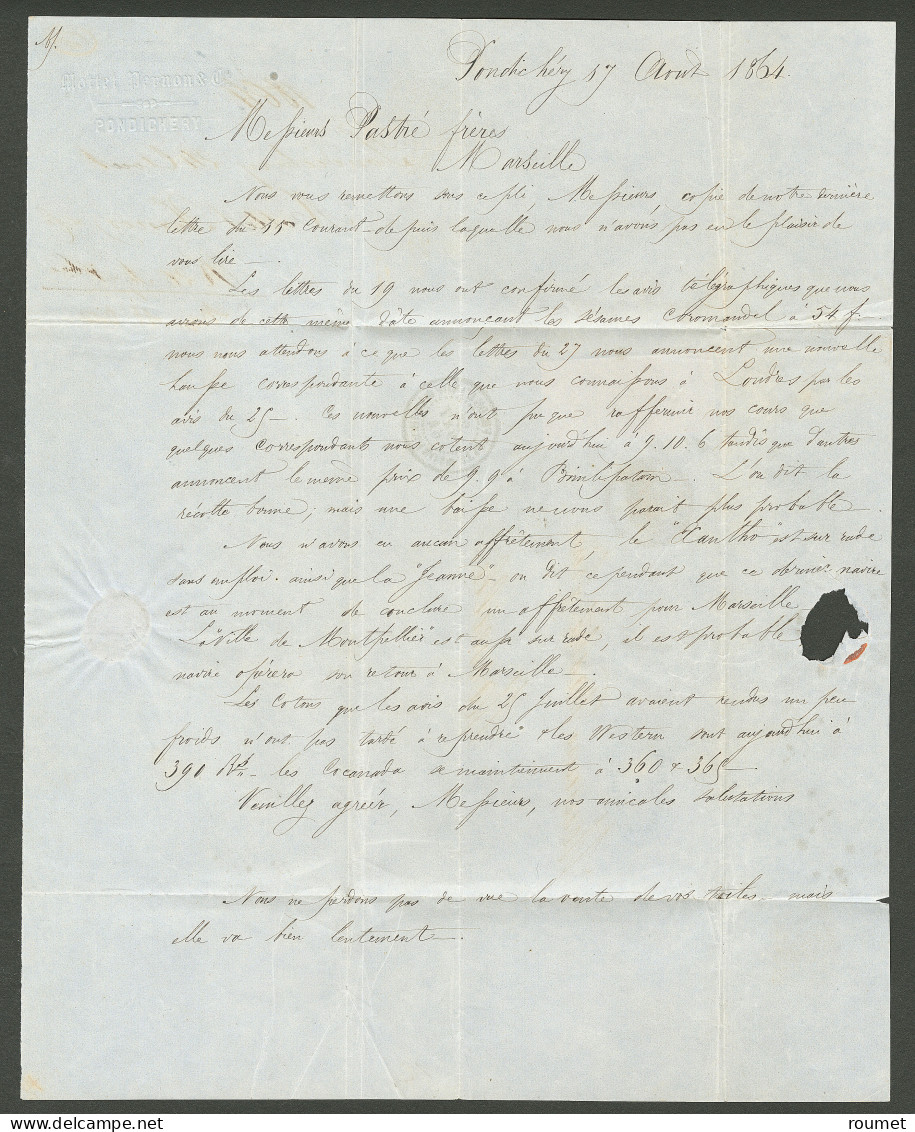 Pondichéry 17 Aout 1864.
PONDICHERY
Messieurs Pastré frères
Marseille
Nous vous remettons sous ce pli, Messieurs, copie de notre dernière
lettre du 15 courant depuis laquelle nous n'avons pas eu le plaisir de
vous lire.
Les lettres du 19 nous ont confirmé les avis télégraphiques que nous
avions de cette même date annonçant les sésames Coromandel à 54 f.
nous nous attendons à ce que les lettres du 27 nous annoncent une nouvelle
hausse correspondante à celle que nous connaissons à Londres par les
avis du 25. Ces nouvelles n'ont pu que raffermir nos cours que
quelques correspondants nous cotent aujourd'hui à 9.10.6 tandis que d'autres
annoncent le même prix de 9.9 à Bimlipatam. L'on dit la
récolte bonne; mais une baisse ne nous parait plus probable
Nous n'avons eu aucun affrètement, le "Xantho" est sur rade
sans emploi ainsi que la "Jeanne" - on dit cependant que ce dernier navire
est au moment de conclure un affrètement pour Marseille
La "Ville de Montpellier" est aussi sur rade, il est probable
navire opérera son retour à Marseille
Les Cotons que les avis du 25 Juillet avaient rendus un peu
froids n'ont pas tardé à reprendre & les Western sont aujourd'hui à
390 Rs - les Cocanada se maintiennent à 360 & 365
Veuillez agréer, Messieurs, nos amicales salutations
Nous ne perdons pas de vue la vente de vos toiles mais
elle va bien lentement.